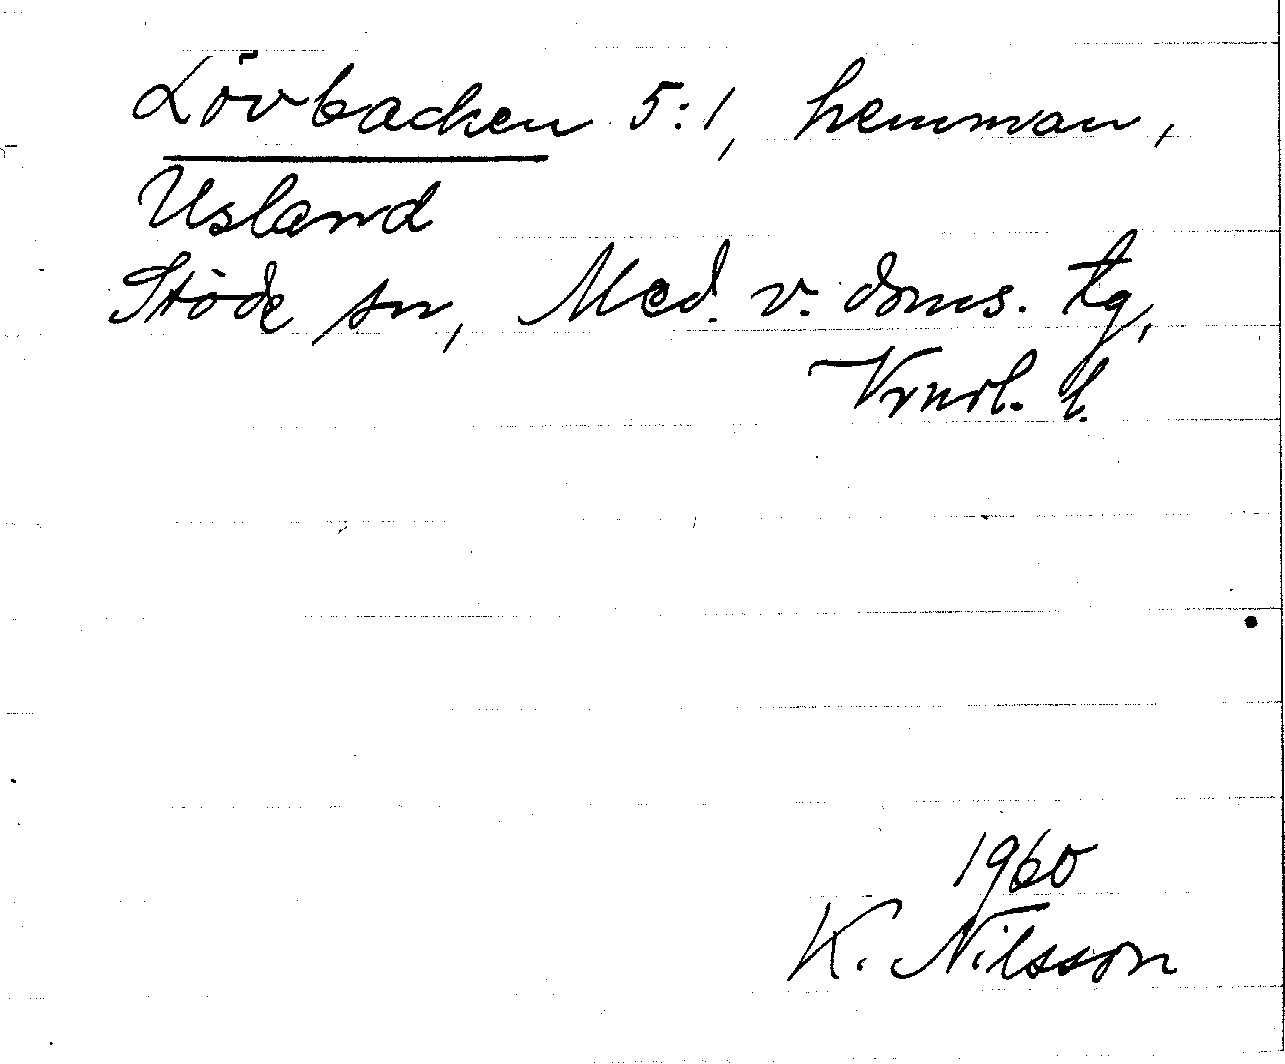 Lövbacken 5:1, hemman,
Usland
Stöde sn, Med. v. doms. tg,
Vrnrl. l.
1960
K. Nilsson